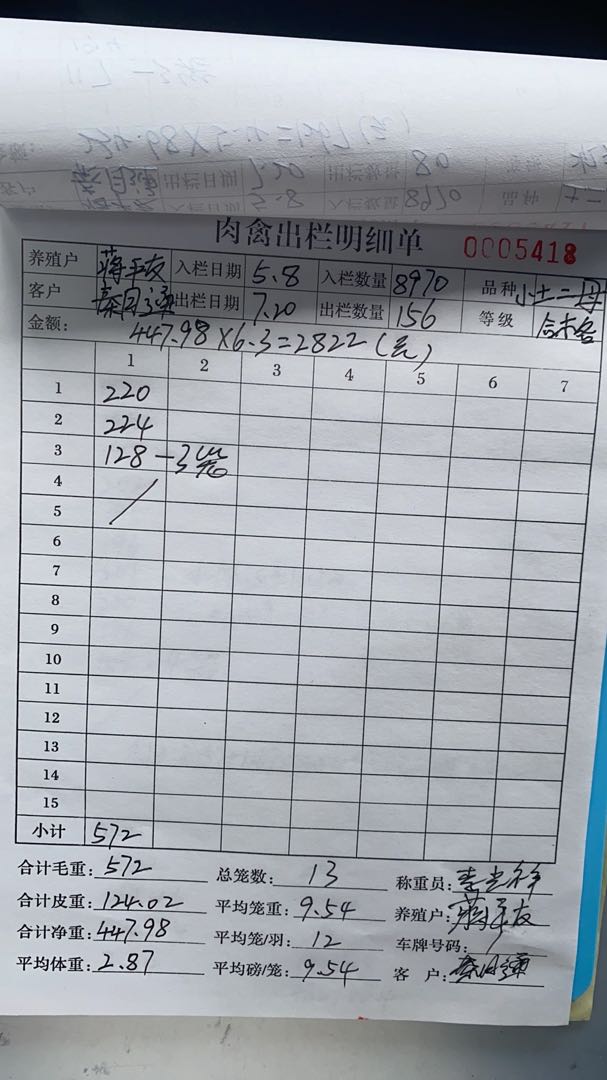 肉禽出栏明细单 0005418
养殖户 入栏日期 5.8 入栏数量 8970 品种 小土二母
客户 出栏日期 7.20 出栏数量 156 等级
金额: 447.98×6.3=2822(元)
1 2 3 4 5 6 7
1 220
2 224
3 128 — 3笼
4
5
6
7
8
9
10
11
12
13
14
15
小计 572
合计毛重: 572 总笼数: 13 称重员:
合计皮重: 124.02 平均笼重: 9.54 养殖户:
合计净重: 447.98 平均笼/羽: 12 车牌号码: /
平均体重: 2.87 平均磅/笼: 9.54 客 户: